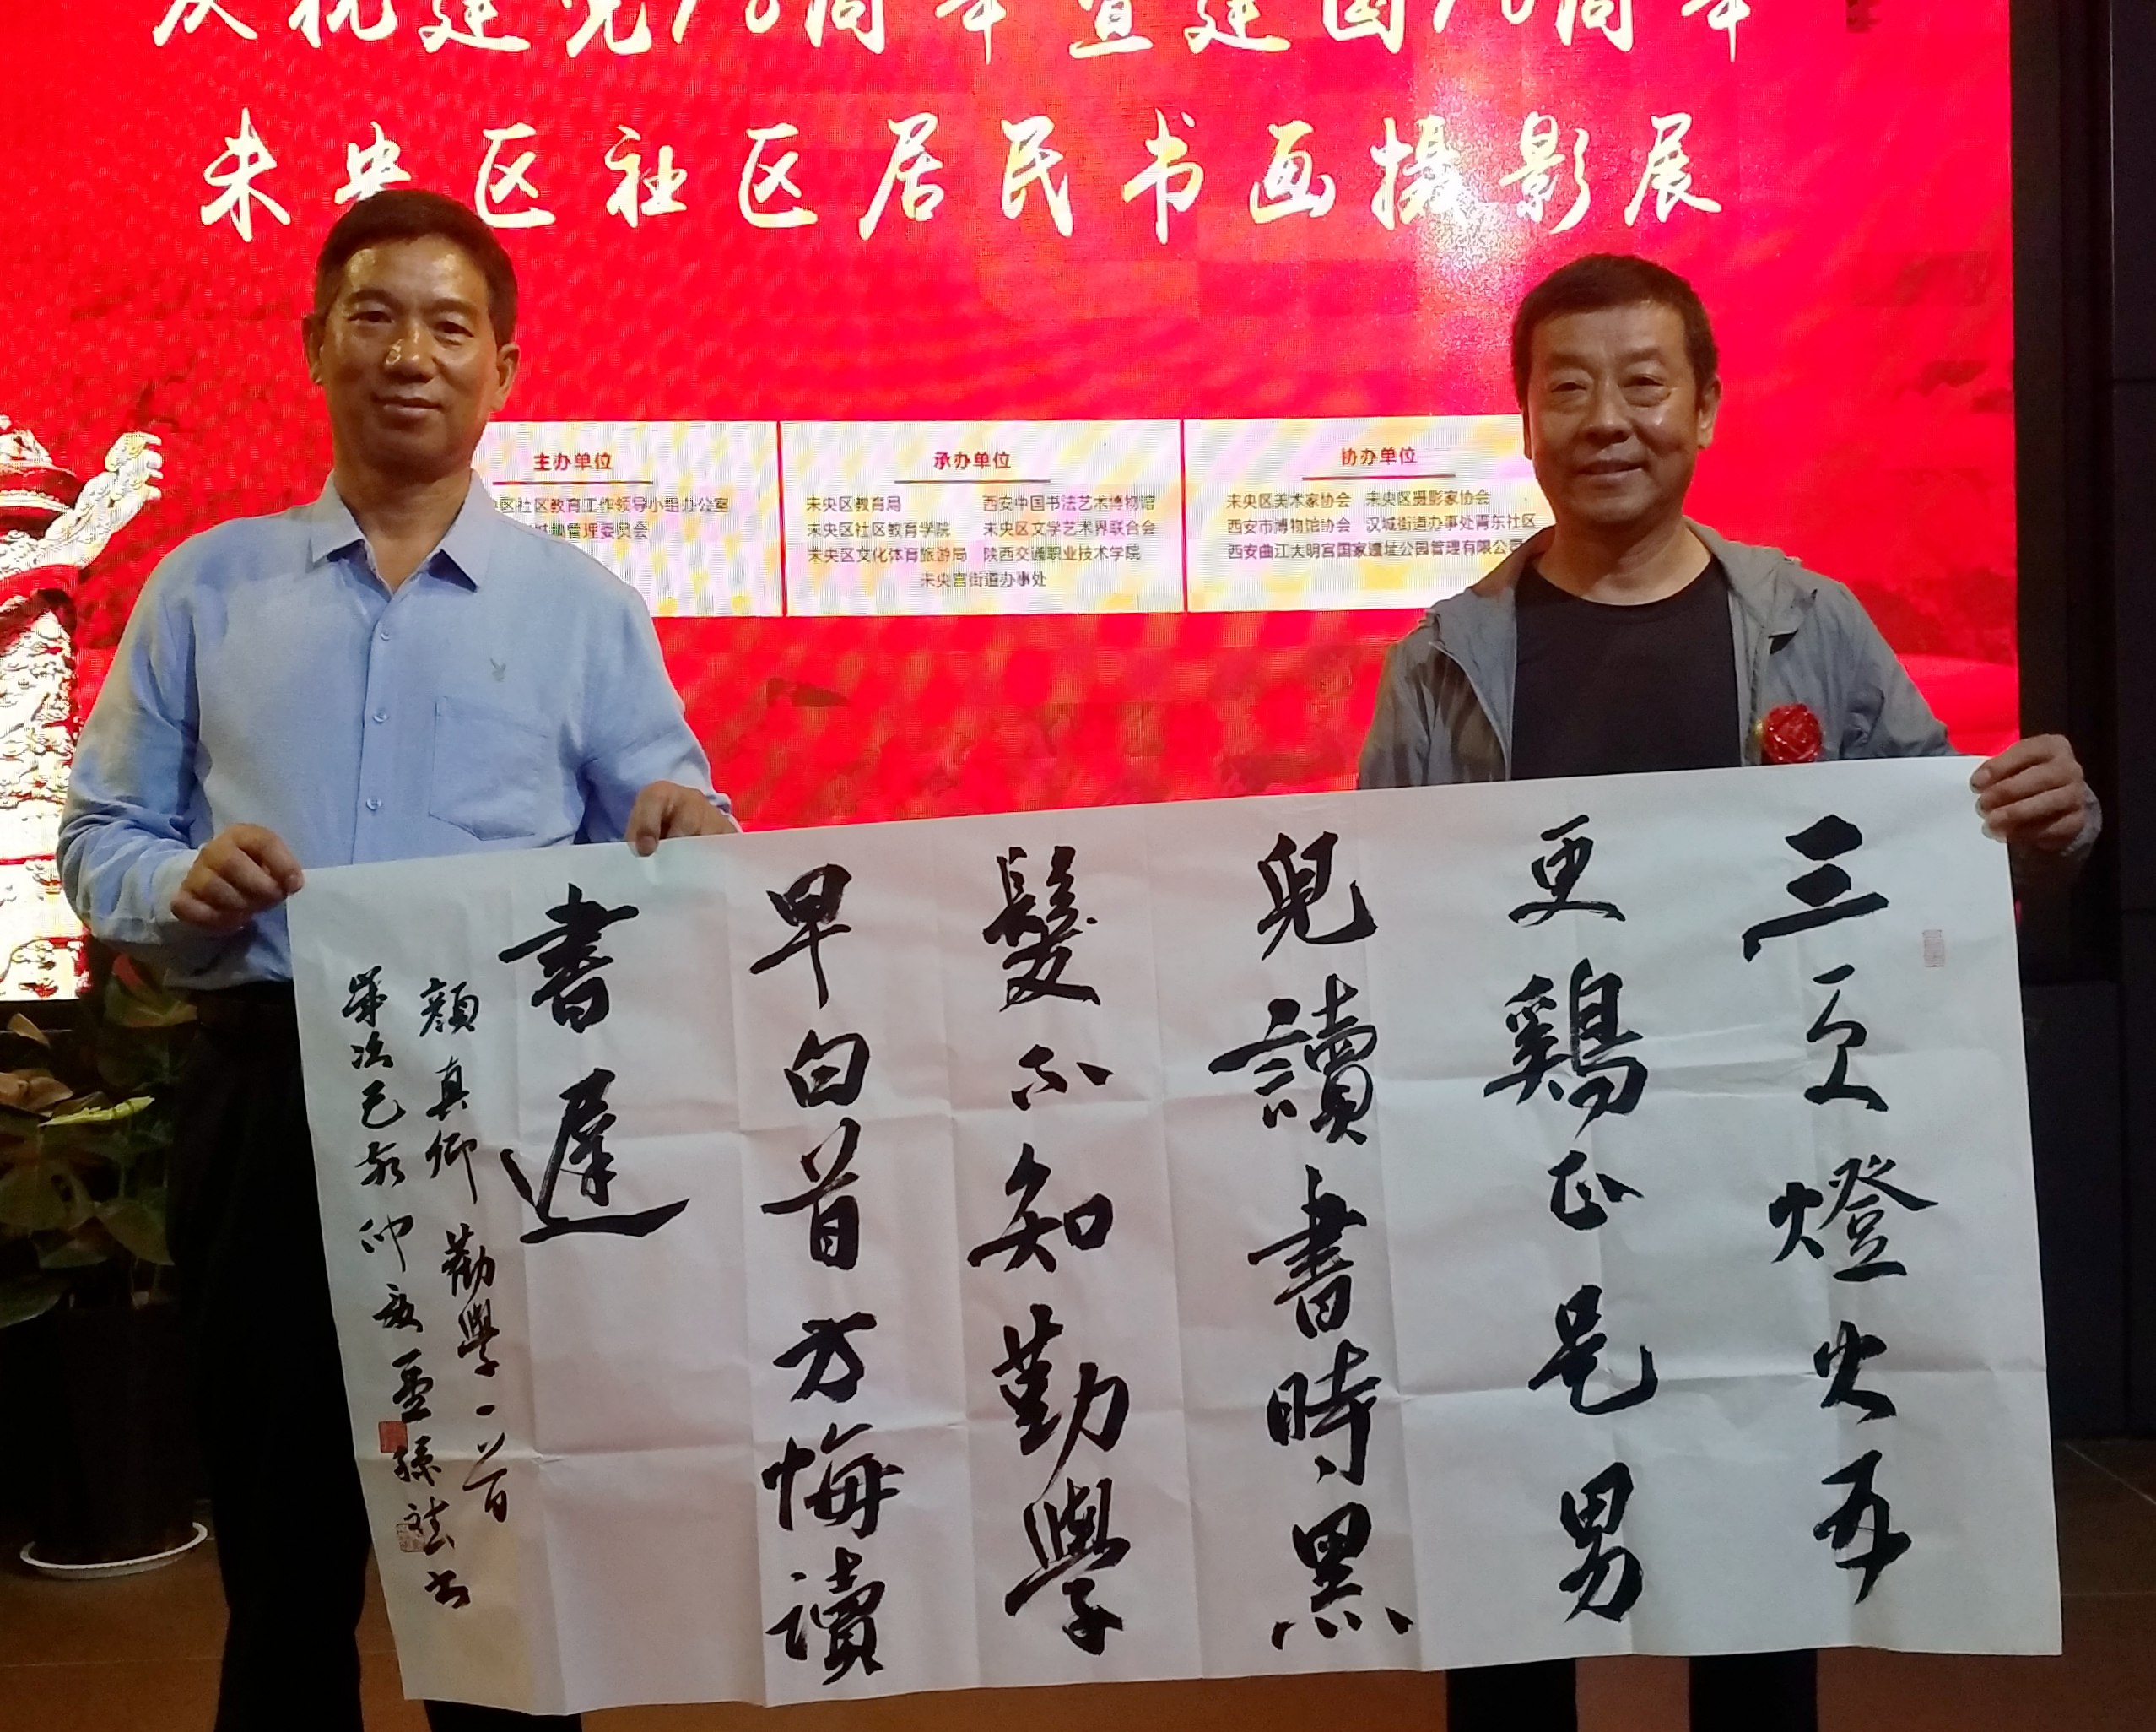 庆祝建党98周年暨建国70周年
未央区社区居民书画摄影展
主办单位
央区社区教育工作领导小组办公室
管理委员会
承办单位
未央区教育局 西安中国书法艺术博物馆
未央区社区教育学院 未央区文学艺术界联合会
未央区文化体育旅游局 陕西交通职业技术学院
未央宫街道办事处
协办单位
未央区美术家协会 未央区摄影家协会
西安市博物馆协会 汉城街道办事处青东社区
西安曲江大明宫国家遗址公园管理有限公司
三更燈火五
更鷄正是男
兒讀書時黑
髮不知勤學
早白首方悔讀
書遲
顏真卿勸學一首
歲次己亥仲夏